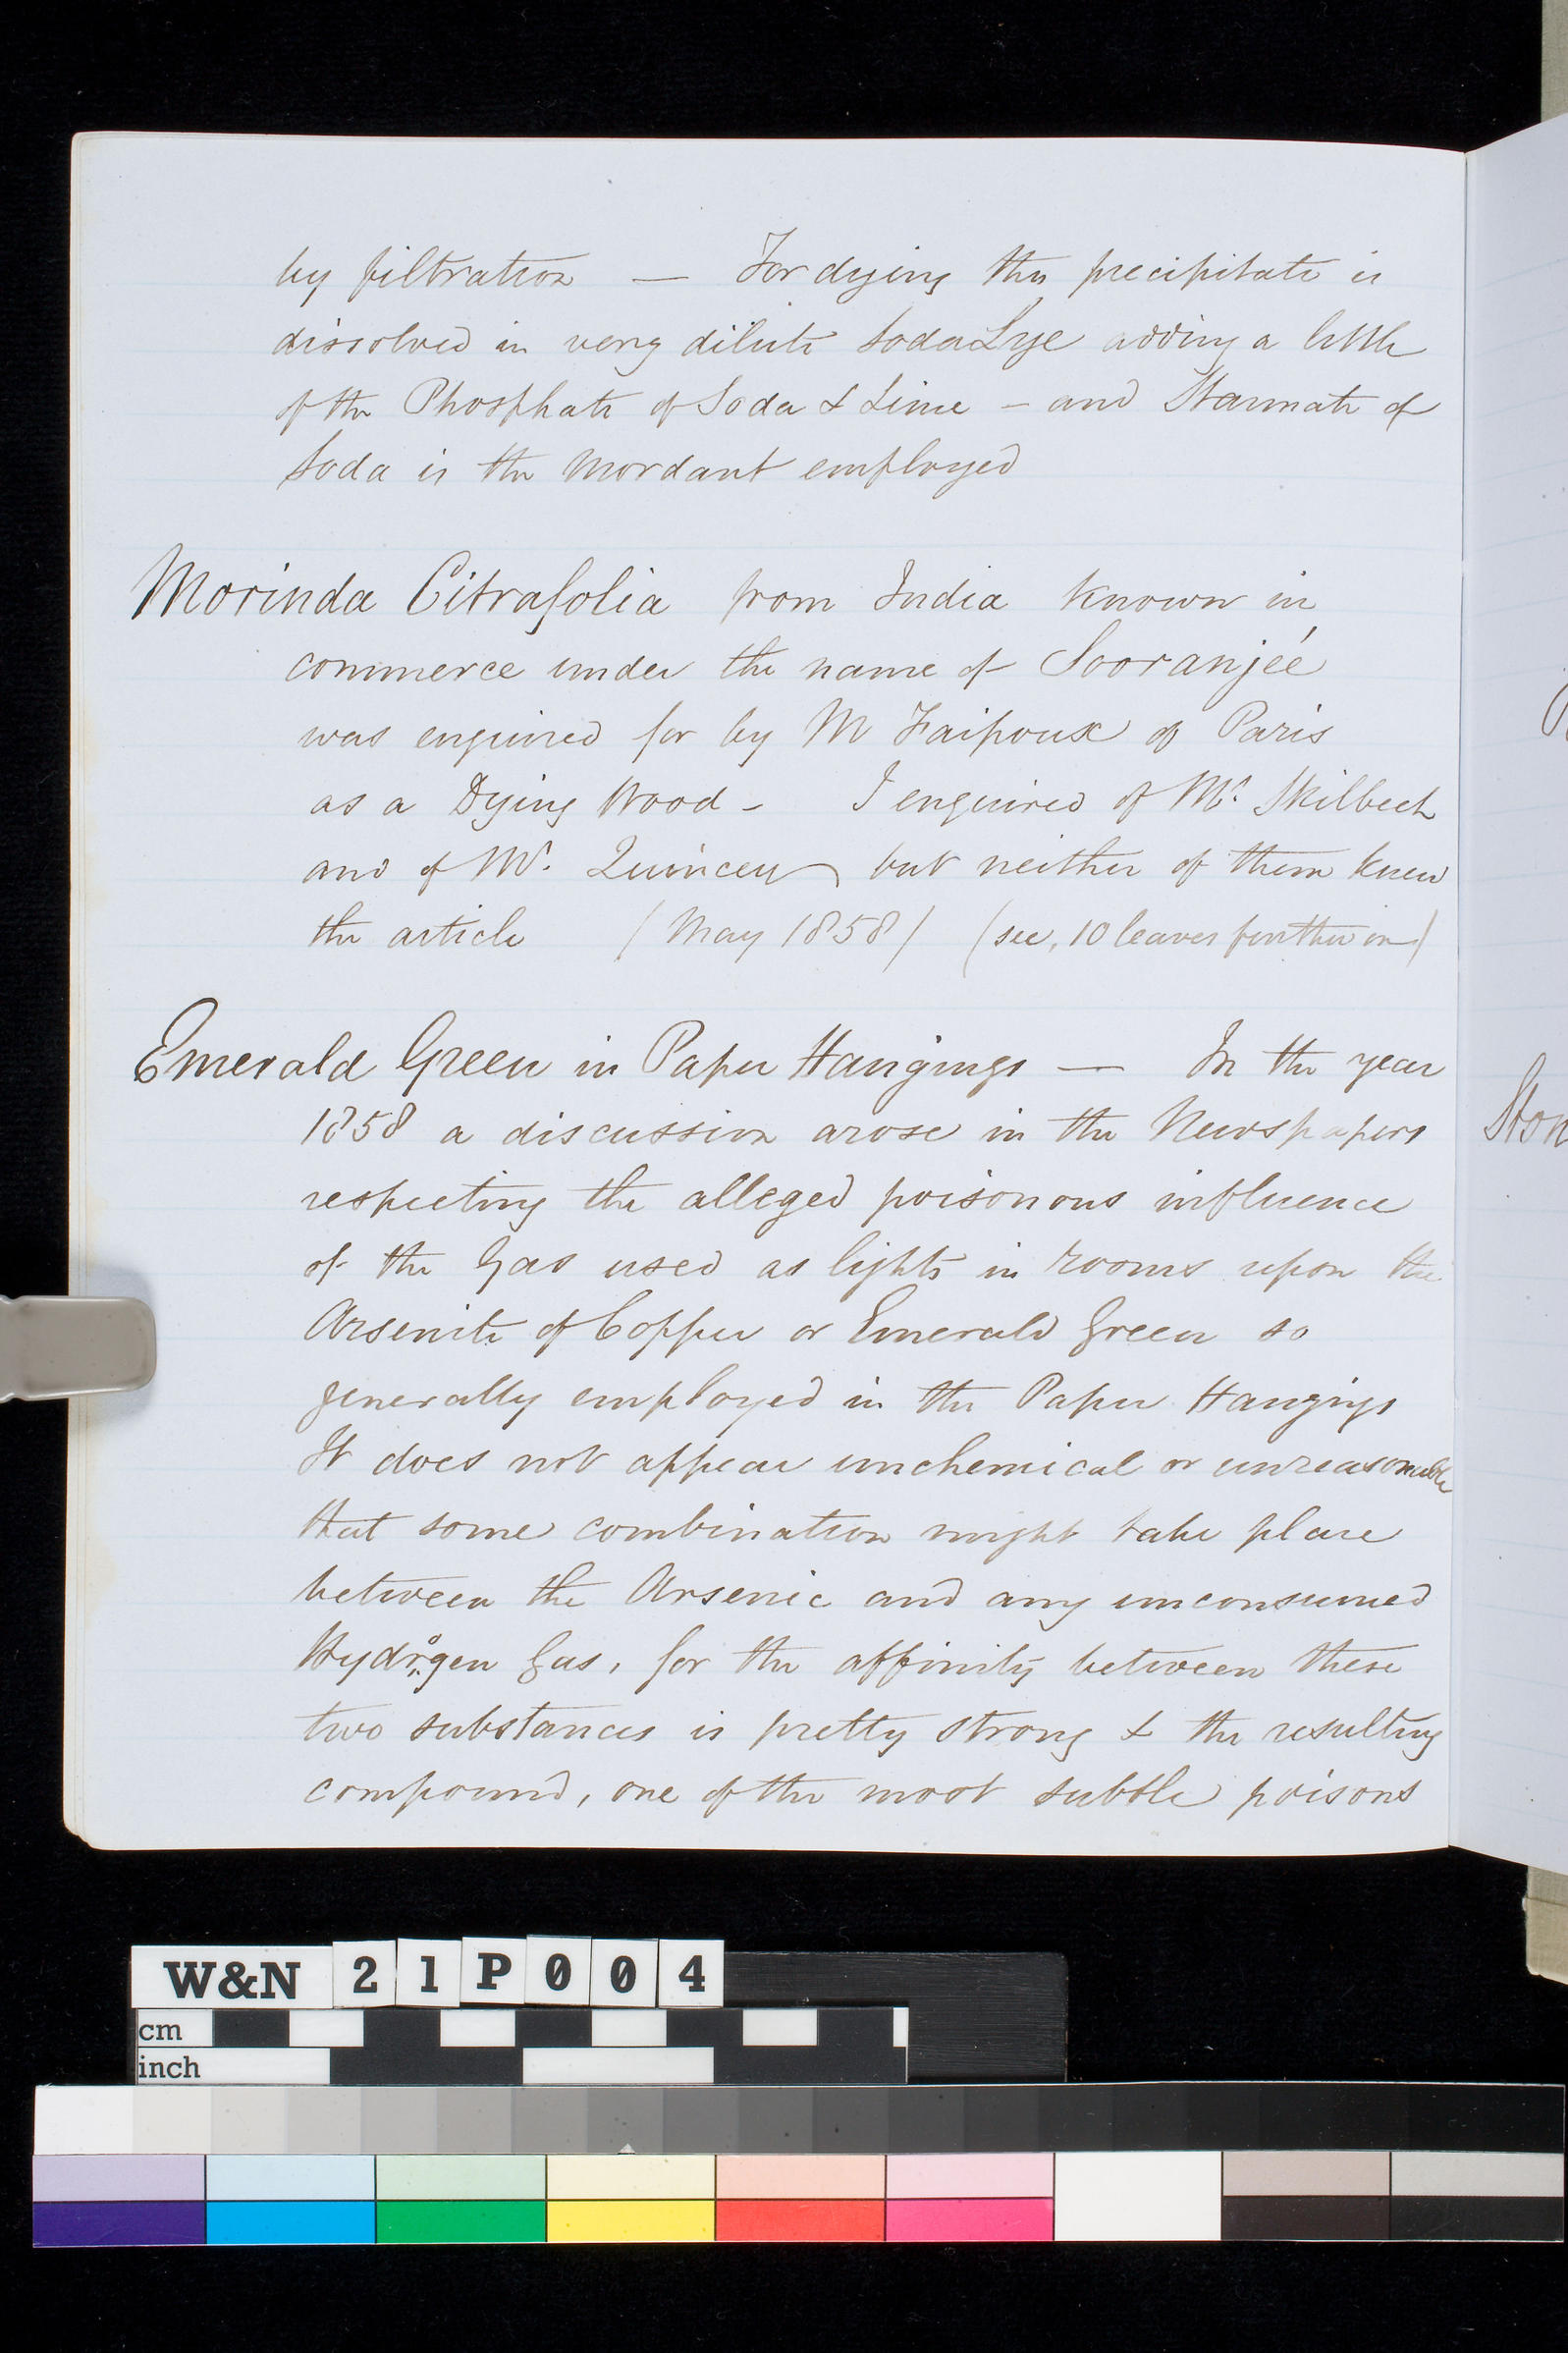 by filtration — For dying this precipitate is
dissolved in very dilute Soda Lye adding a little
of the Phosphate of Soda & Lime – and Stannate of
Soda is the Mordant employed
Morinda Citrafolia from India known in
commerce under the name of Sooranjeé
was enquired for by M Faipoux of Paris
as a Dying Wood – I enquired of Mr. Skilbeck
and of Mr. Quincey but neither of them knew
the article (May 1858) (see, 10 leaves further on)
Emerald Green in Paper Hangings — In the year
1858 a discussion arose in the Newspapers
respecting the alleged poisonous influence
of the Gas used as lights in rooms upon the
Arsenite of Copper or Emerald Green so
generally employed in the Paper Hangings
It does not appear unchemical or unreasonable
that some combination might take place
between the Arsenic and any unconsumed
Hydrogen Gas, for the affinity between these
two substances is pretty strong & the resulting
compound, one of the most subtle poisons
Ston
W&N 21P004
cm
inch